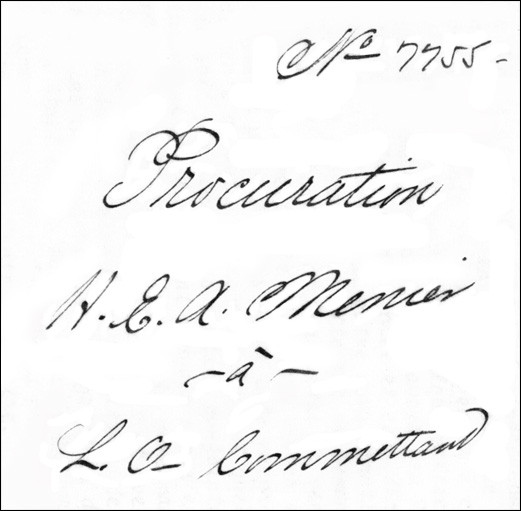 No 7755-
Procuration
H. E. A. Menier
- à -
L. O. Commettant